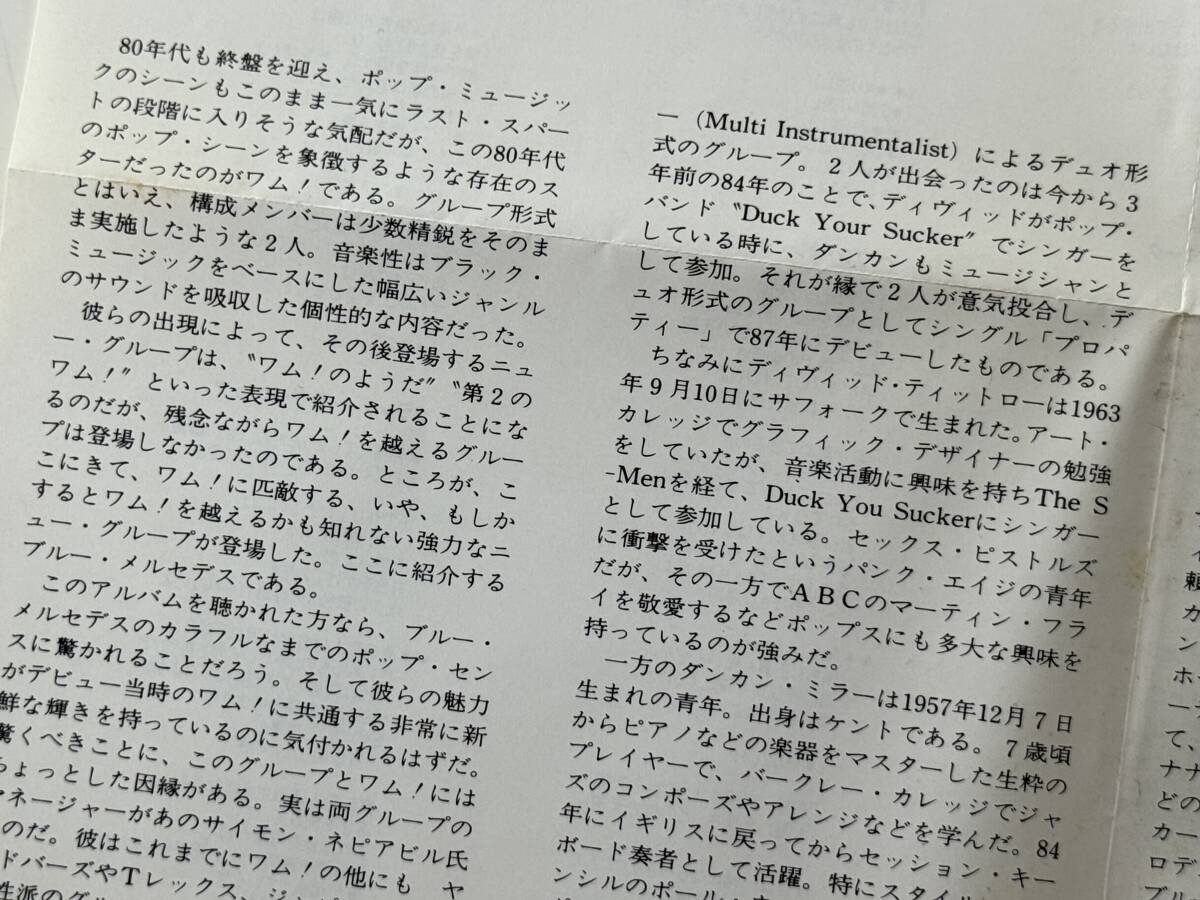 80年代も終盤を迎え、ポップ・ミュージッ
クのシーンもこのまま一気にラスト・スパー
トの段階に入りそうな気配だが、この80年代
のポップ・シーンを象徴するような存在のス
ターだったのがワム！である。グループ形式
とはいえ、構成メンバーは少数精鋭をそのま
ま実施したような2人。音楽性はブラック・
ミュージックをベースにした幅広いジャンル
のサウンドを吸収した個性的な内容だった。
彼らの出現によって、その後登場するニュ
ー・グループは、〝ワム！のようだ〟〝第2の
ワム！〟といった表現で紹介されることにな
るのだが、残念ながらワム！を越えるグルー
プは登場しなかったのである。ところが、こ
こにきて、ワム！に匹敵する、いや、もしか
するとワム！を越えるかも知れない強力なニ
ュー・グループが登場した。ここに紹介する
ブルー・メルセデスである。
このアルバムを聴かれた方なら、ブルー・
メルセデスのカラフルなまでのポップ・セン
スに驚かれることだろう。そして彼らの魅力
がデビュー当時のワム！に共通する非常に新
鮮な輝きを持っているのに気付かれるはずだ。
驚くべきことに、このグループとワム！には
ちょっとした因縁がある。実は両グループの
マネージャーがあのサイモン・ネピアビル氏
のだ。彼はこれまでにワム！の他にも ヤ
ドバーズやTレックス、
性派のグル
ー（Multi Instrumentalist）によるデュオ形
式のグループ。2人が出会ったのは今から3
年前の84年のことで、ディヴィッドがポップ・
バンド〝Duck Your Sucker〟でシンガーを
している時に、ダンカンもミュージシャンと
して参加。それが縁で2人が意気投合し、デ
ュオ形式のグループとしてシングル「プロパ
ティー」で87年にデビューしたものである。
ちなみにディヴィッド・ティットローは1963
年9月10日にサフォークで生まれた。アート・
カレッジでグラフィック・デザイナーの勉強
をしていたが、音楽活動に興味を持ちThe S
-Menを経て、Duck You Suckerにシンガー
として参加している。セックス・ピストルズ
に衝撃を受けたというパンク・エイジの青年
だが、その一方でABCのマーティン・フラ
イを敬愛するなどポップスにも多大な興味を
持っているのが強みだ。
一方のダンカン・ミラーは1957年12月7日
生まれの青年。出身はケントである。7歳頃
からピアノなどの楽器をマスターした生粋の
プレイヤーで、バークレー・カレッジでジャ
ズのコンポーズやアレンジなどを学んだ。84
年にイギリスに戻ってからセッション・キー
ボード奏者として活躍。特にスタイル
ンシルのポール・
イ
頼
カ
ン
ホー
ー
て、
ナナ
どの
カー
ロデ
ブル